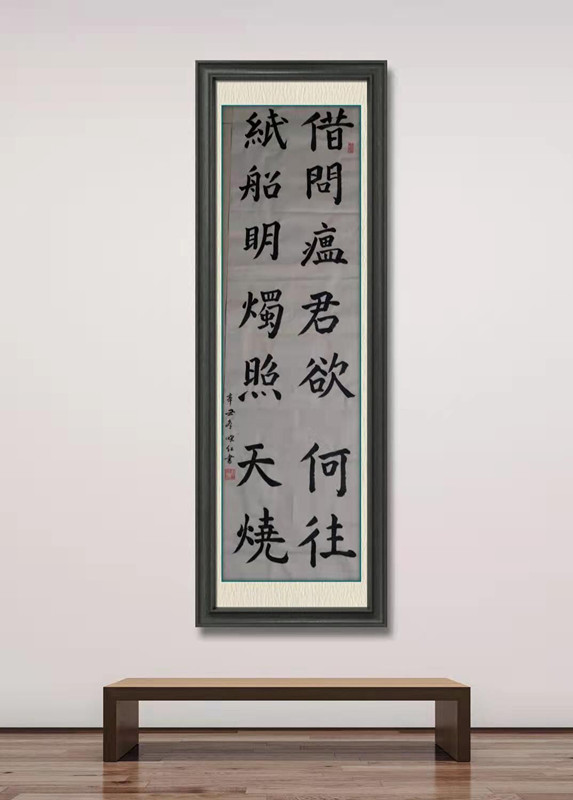 借問瘟君欲何往
紙船明燭照天燒
辛丑 書